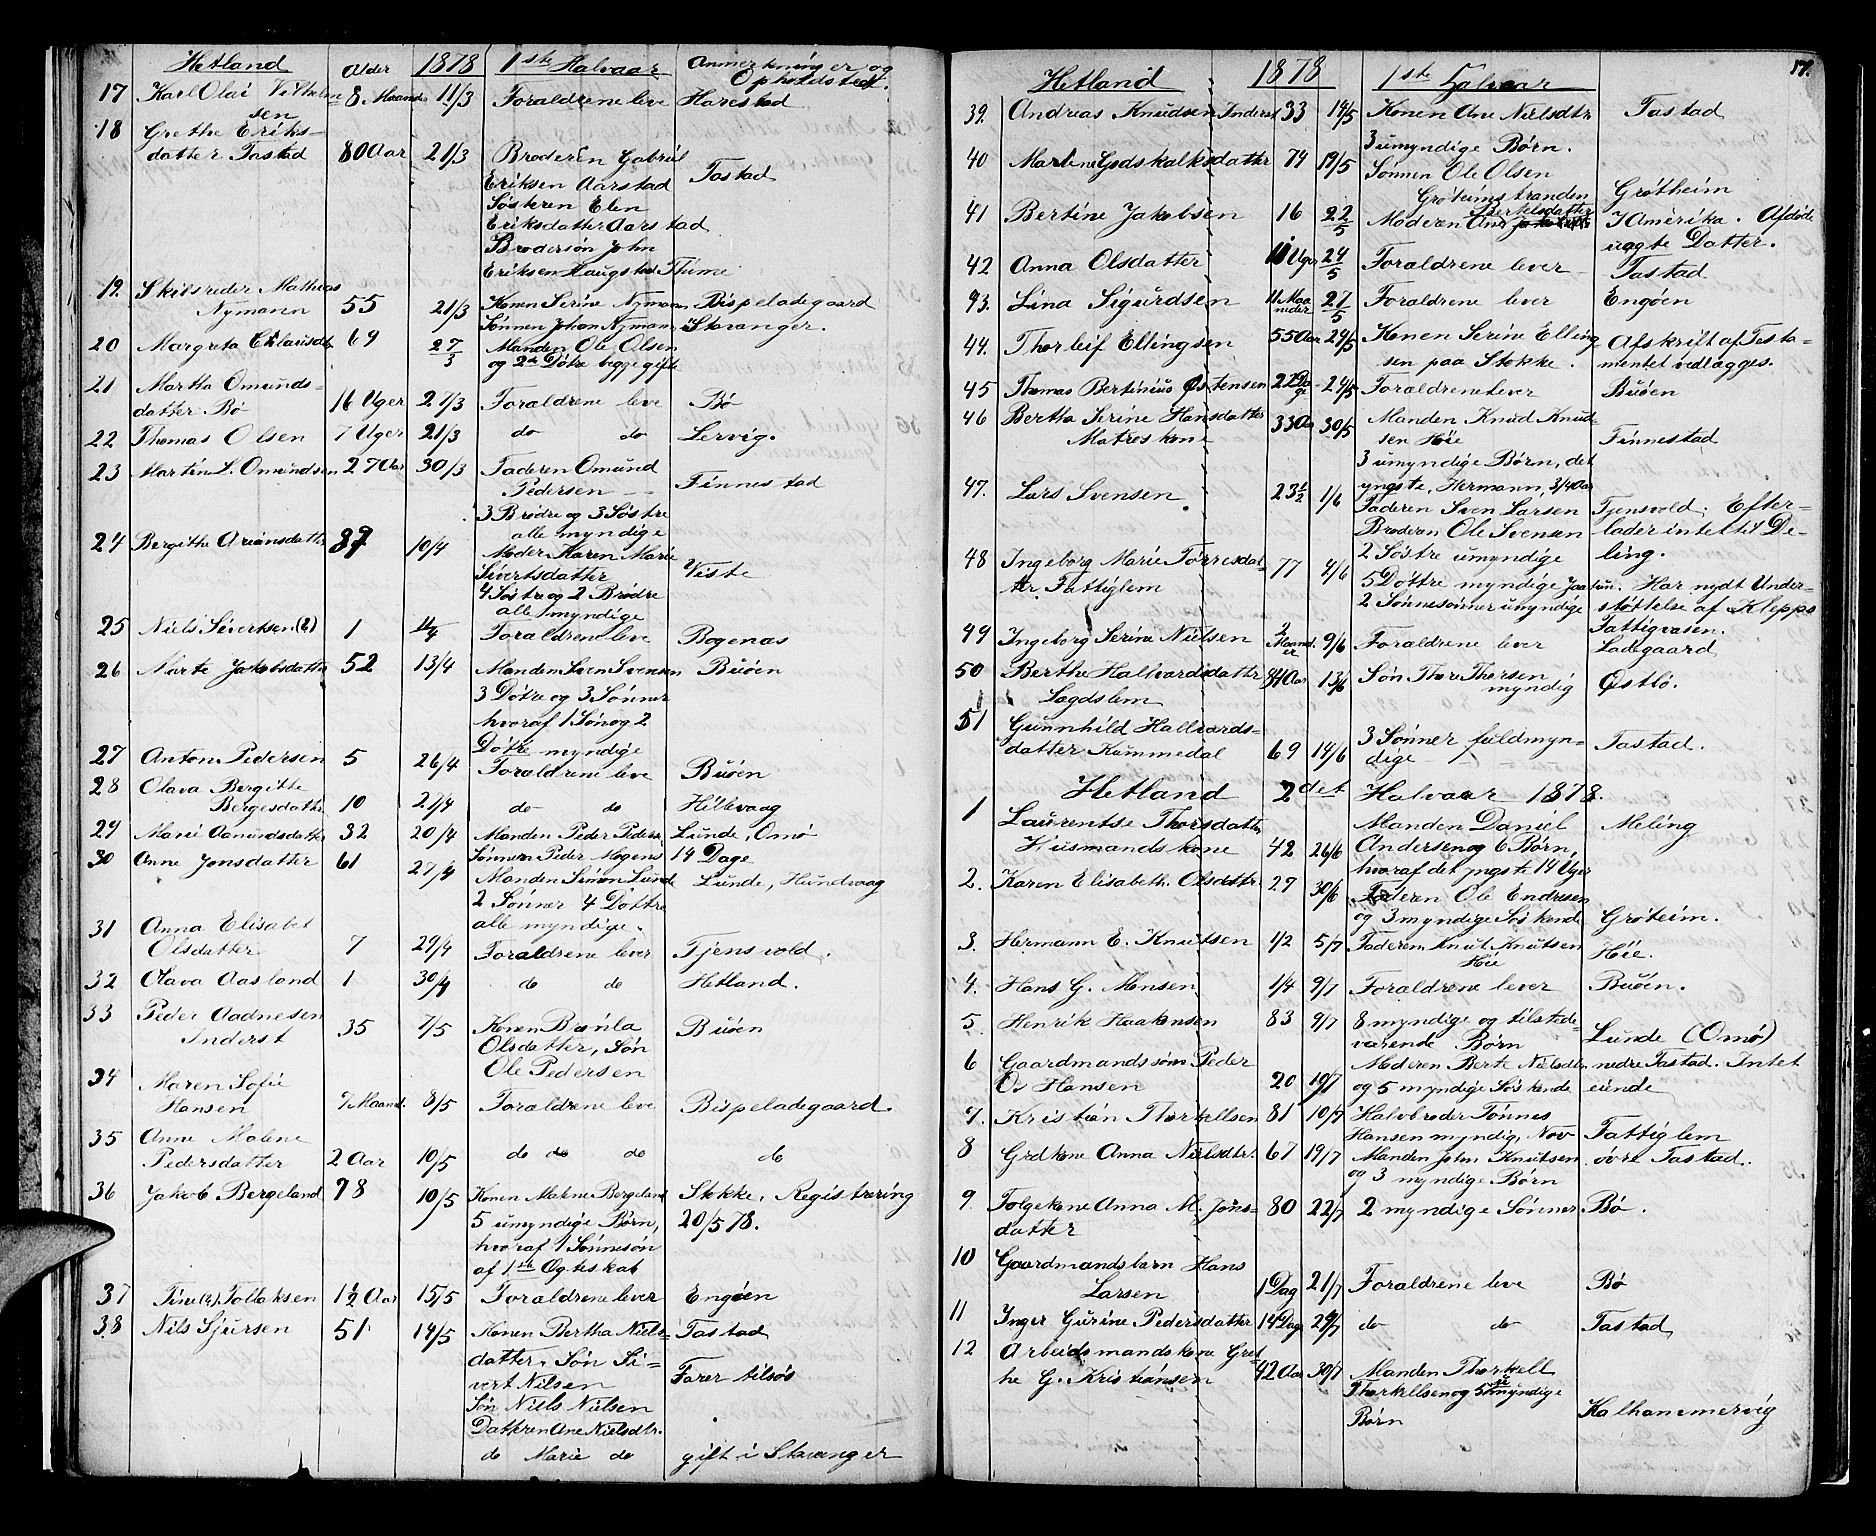 Hetland Alder 1878 1ste Halvaar Anmerkninger og
Opholdsted.
17 Karl Olai Vilhelm 8 Maaneder 11/3 Forældrene leve Harestad
sen
18 Grethe Eriks-
datter Tastad 80 Aar 21/3 Broderen Gabriel Tastad
Eriksen Aarstad
Søsteren Elen
Eriksdatter Aarstad
Brodersøn John
Eriksen Haugstad Thime
19. Skibsreder Mathias
Nymann 55 21/3 Konen Serine Nymann Bispeladegaard
Sønnen Johan Nymann Stavanger.
20 Margreta 69 27/3 Manden Ole Olsen
og 2de Døtre begge gifte
21 Martha Omunds-
datter Bø 16 Uger 21/3 Forældrene leve Bø
22 Thomas Olsen 7 Uger 21/3 do do Lervig.
23 Martin L. Omundsen 27 Aar 30/3 Faderen Omund Finnestad
Pedersen
3 Brødre og 3 Søstre
alle myndige
24 Bergithe Ariansdatter 87 10/4 Moder Karen Marie Viste
Sivertsdatter
4 Søstre og 2 Brødre
alle myndige
25 Niels Sivertsen (2) 1 11/4 Forældrene leve Bogenæs
26 Marte Jakobsdatter 52 13/4 Manden Sven Svensen Buøen
3 Døtre og 3 Sønner
hvoraf 1 Søn og 2
Døtre myndige
27 Anton Pedersen 5 26/4 Forældrene leve Buøen
28 Olava Bergitte
Bergesdatter 10 27/4 do do Hillevaag
29 Marie Aamundsdatter 32 20/4 Manden Peder Peders Lunde, Omø
Sønnen Peder Mogens 14 Dage
30 Anne Jonsdatter 61 27/4 Manden Simon Lunde Lunde, Hundvaag
2 Sønner 4 Døttre
alle myndige.
31 Anna Elisabet
Olsdatter 7 29/4 Forældrene lever Tjensvold.
32 Olava Aasland 1 30/4 do do Hetland.
33 Peder Aadnesen
Inderst 35 7/5 Konen Buøen
Olsdatter, Søn
Ole Pedersen
34 Maren Sofie
Hansen Maand. 8/5 Forældrene leve Bispeladegaard.
35 Anne Malene
Pedersdatter 2 Aar 10/5 do do do do
36 Jakob Bergeland 78 10/5 Konen Malene Bergeland Stokke. Registrering
5 umyndige Børn, 20/5 78.
hvoraf 1 Sønnesøn
af 1ste Ægteskab
37 Tollaksen 1½ Aar 15/5 Forældrene lever Engøen
38 Nils Sjursen 51 14/5 Konen Bertha Niels- Tastad
datter, Søn Si-
vert Nilsen Farer tilsøs
Søn Niels Nielsen
Datteren Ane Nielsdtr.
do Marie do gift i Stavanger
17.
Hetland 1878 1ste Halvaar
39. Andreas Knudsen Inderst 33 14/5 Konen Ane Nielsdtr Tastad
3 umyndige Børn.
40 Marlene Godskalksdatter 74 19/5 Sønnen Ole Olsen
Grøteimstranden Grøtheim
41 Bertine Jakobsen 16 22/5 Moderen Ane Berkelsdatter I Amerika. Afdøde
uægte Datter.
42 Anna Olsdatter 11 Uger 24/5 Forældrene lever Tastad
43. Lina Sigurdsen 11 Maaneder 27/5 Forældrene lever Engøen
44. Thorleif Ellingsen 55 Aar 24/5 Konen Serine Elling- Afskrift af Testa-
sen paa Stokke. mentet vedlægges.
45 Thomas Bertinius Østensen 22 Dage 24/5 Forældrene lever Buøen
46 Bertha Serine Hansdatter 33 Aar 30/5 Manden Knud Knud-
Matroskone sen Høie Finnestad
3 umyndige Børn, det
yngste, Hermann, 3/4 Aar
47. Lars Svensen 23½ 1/6 Faderen Sven Larsen Tjensvold. Efter-
Broderen Ole Svensen lader intet til De-
2 Søstre umyndige ling.
48 Ingeborg Marie Torresdat- 77 4/6 5 Døttre myndige Jaatun. Har nydt Under-
ter. Fattiglem 2 Sønnesønner umyndige støttelse af Klepps
Fattigvæsen.
49 Ingeborg Serine Nielsen 2 Maaneder 9/6 Forældrene lever Ladegaard
50 Berthe Hallvardsdatter 84 Aar 13/6 Søn Thore Thorsen Østbø.
Lagdslem myndig
51 Gunnhild Hallvards-
datter Kummedal 69 14/6 3 Sønner fuldmyn- Tastad.
dige
Hetland 2det Halvaar 1878.
1 Laurentse Thorsdatter Manden Daniel Meling
Husmandskone 42 26/6 Andersen og 6 Børn,
hvoraf det yngste 14 Uger
2. Karen Elisabeth Olsdatter 27 30/6 Faderen Ole Endresen
og 3 myndige Søskende Grøteim.
3. Hermann E. Knutsen 1/2 5/7 Faderen Knut Knutsen Høie.
Høie
4. Hans G. Monsen 1/4 9/7 Forældrene lever Buøen.
5. Henrik Haakonsen 83 9/7 8 myndige og tilstede-
værende Børn Lunde (Omø)
6 Gaardmandssøn Peder Moderen Berte Nielsdtr nedre Tastad. Intet
O. Hansen 20 19/7 og 5 myndige Søskende eiende
7. Kristian Thorkellsen 81 10/7 Halvbroder Tønnes
Hansen myndig, Fattiglem
8 Grdkone Anna Nielsdtr. 67 19/7 Manden John Knutsen øvre Tastad.
og 3 myndige Børn
9. Folgekone Anna M. Jons- 80 22/7 2 myndige Sønner Bø.
datter
10 Gaardmandsbarn Hans
Larsen 1 Dag 21/7 Forældrene leve Bø
11 Inger Gurine Pedersdatter 14 Dage 29/7 do do Tastad
12 Arbeidsmandskone Gret-
he G. Kristiansen 42 Aar 30/7 Manden Thorkell
Thorkellsen og 5 umyndige
Børn Kalhammervig